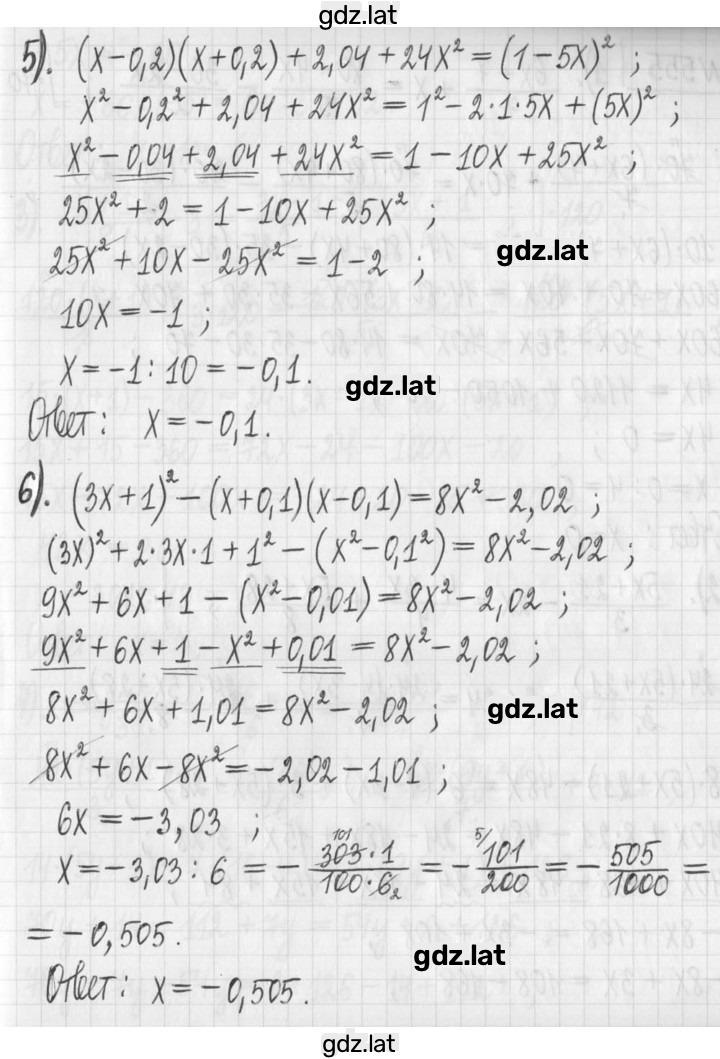 gdz.lat
5). (x-0,2)(x+0,2)+2,04+24x²=(1-5x)² ;
x²-0,2²+2,04+24x²=1²-2·1·5x+(5x)² ;
x²-0,04+2,04+24x²=1-10x+25x² ;
25x²+2=1-10x+25x² ;
gdz.lat
25x²+10x-25x²=1-2 ;
10x=-1 ;
x=-1:10=-0,1.
gdz.lat
Ответ: x=-0,1.
6). (3x+1)²-(x+0,1)(x-0,1)=8x²-2,02 ;
(3x)²+2·3x·1+1²-(x²-0,1²)=8x²-2,02 ;
9x²+6x+1-(x²-0,01)=8x²-2,02 ;
9x²+6x+1-x²+0,01=8x²-2,02 ;
8x²+6x+1,01=8x²-2,02 ;
gdz.lat
8x²+6x-8x²=-2,02-1,01 ;
6x=-3,03 ;
x=-3,03:6=-303·1/100·6=-101/200=-505/1000=
=-0,505.
gdz.lat
Ответ: x=-0,505.
gdz.lat